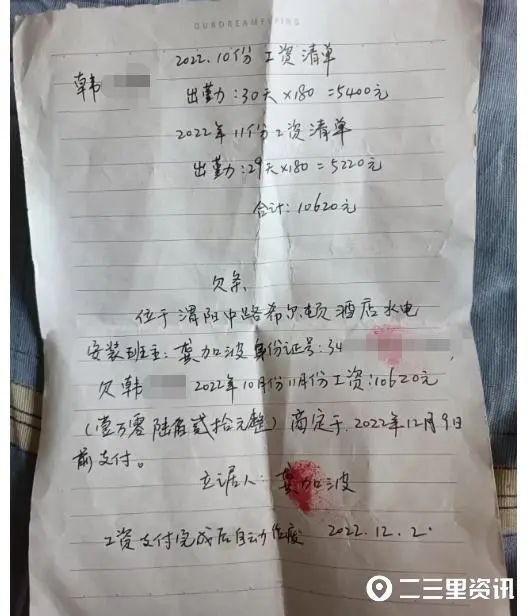 OURDREAMSPRING
2022.10份工资清单
韩
出勤:30天×180=5400元
2022年11份工资清单
出勤:29天×180=5220元
合计:10620元
欠条
位于渭阳中路希尔顿酒店水电
安装班主:龚加波身份证号:34
欠韩 2022年10月份11月份工资:10620元
(壹万零陆佰贰拾元整)商定于2022年12月9日
前支付。
立据人:龚加波
工资支付完成后自动作废 2022.12.2
二三里资讯